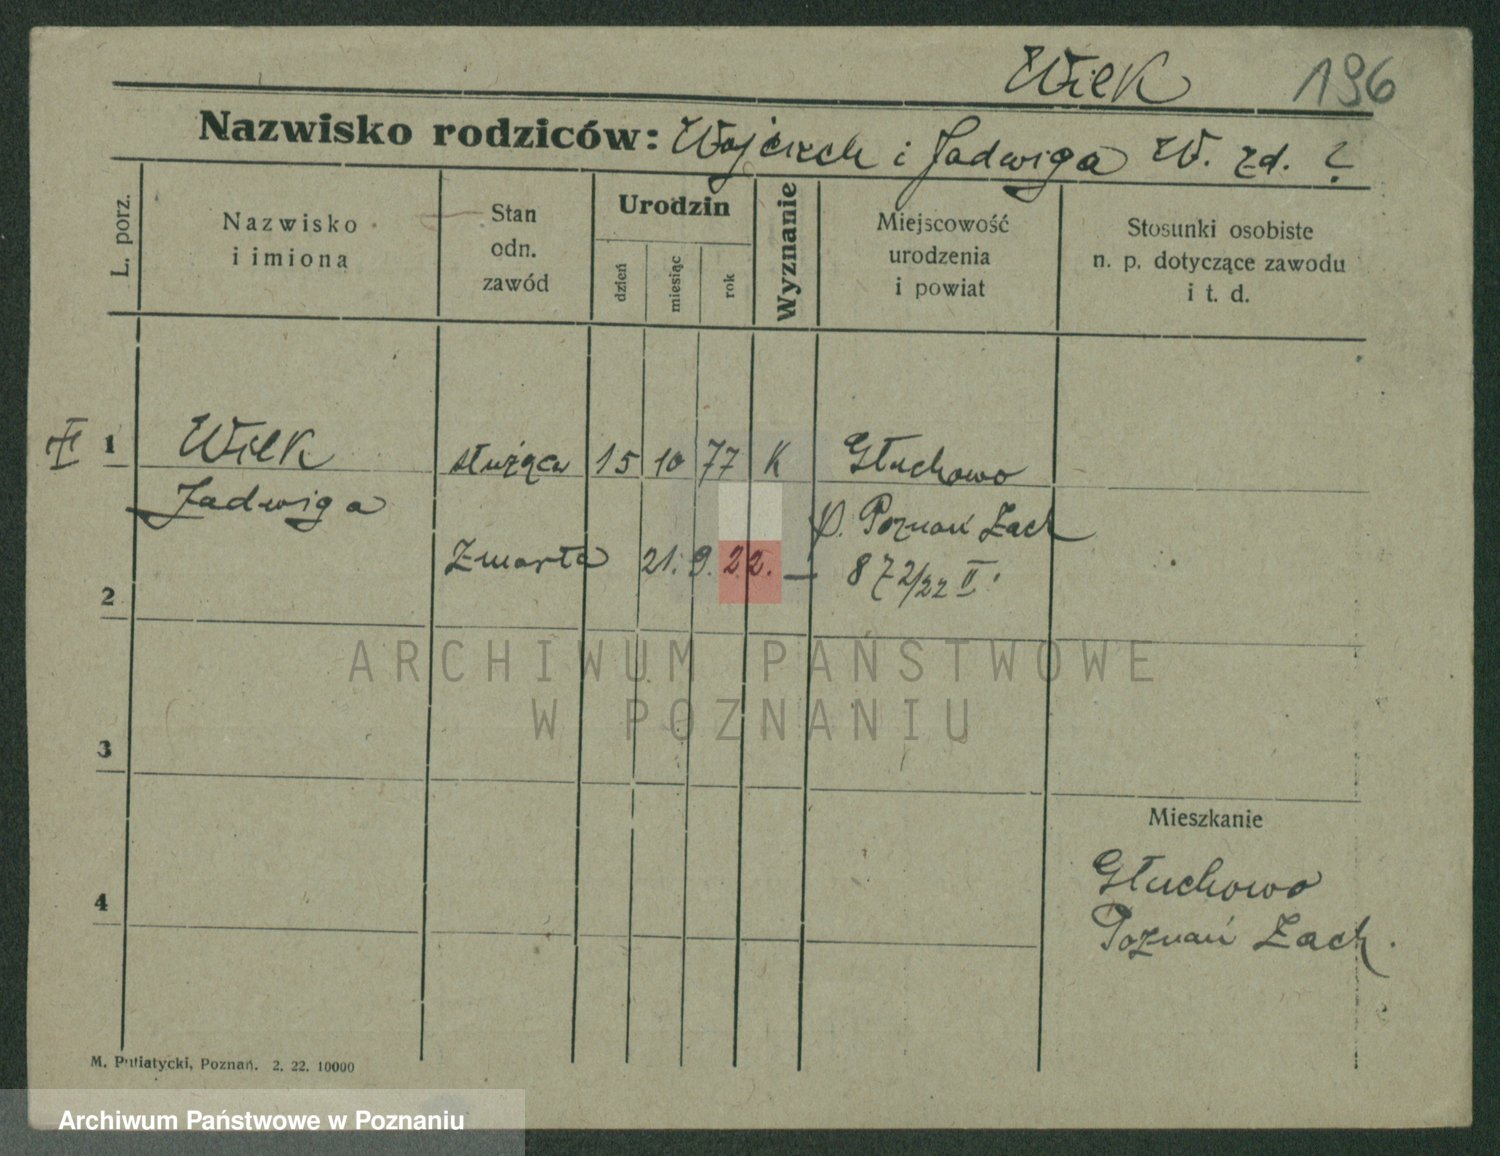 Wilk 196
Nazwisko rodziców: Wojciech i Jadwiga W. zd. ?
L. porz.
Nazwisko
i imiona
Stan
odn.
zawód
Urodzin
dzień
miesiąc
rok
Wyznanie
Miejscowość
urodzenia
i powiat
Stosunki osobiste
n. p. dotyczące zawodu
i t. d.
1 Wilk służąca 15 10 77 K Głuchowo
Jadwiga p. Poznań Zach
Zmarła 21. 9. 22. — 872/22 II.
2
ARCHIWUM PAŃSTWOWE
W POZNANIU
3
Mieszkanie
4 Głuchowo
Poznań Zach.
M. Putiatycki, Poznań. 2. 22. 10000
Archiwum Państwowe w Poznaniu